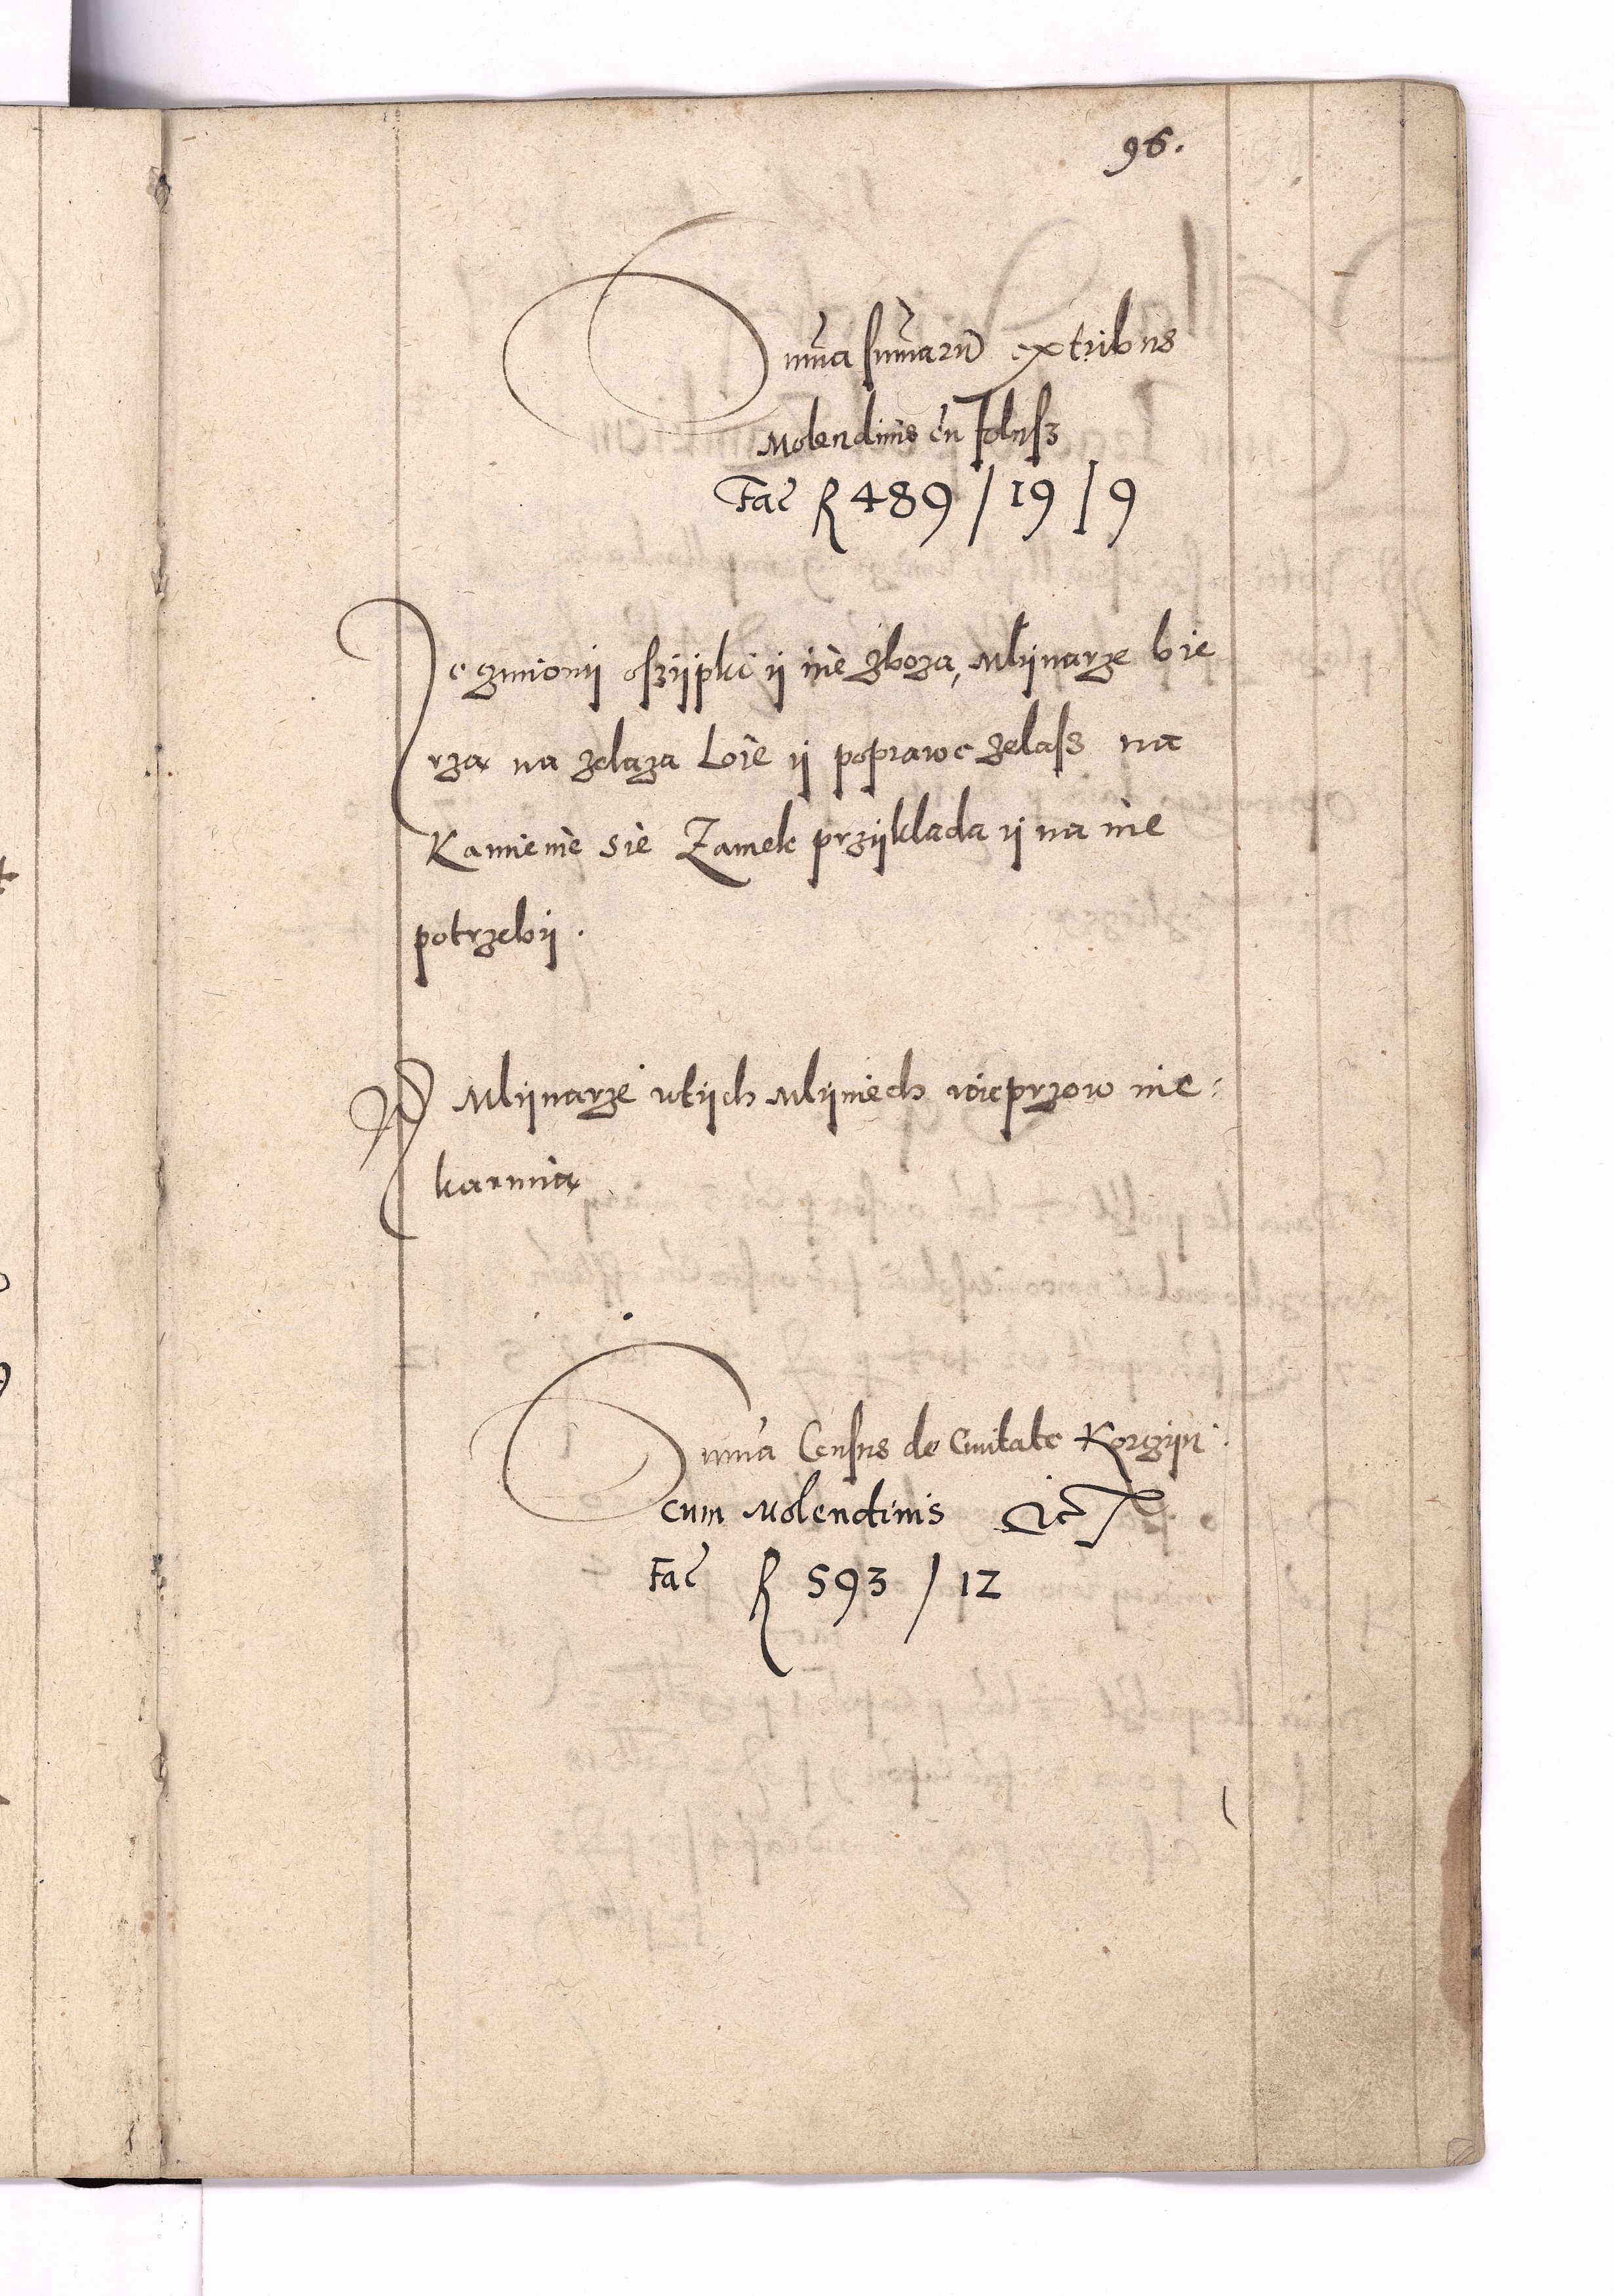 96.
Summa summarum ex tribus
Molendinis cū foluſz
Fac̄ R 489 / 19 / 9
Jęgzmiony oſzÿpki ÿ ine zboza, Mlÿnarze bie
rzą na zelaza Loie ÿ poprawe zelaſs na
Kamienie sie Zamek przÿklada ÿ na ine
potrzebÿ.
Mlÿnarze wtÿch Mlÿniech wieprzow nie=
karmią
Summa Census de Civitate Korczÿn
cum Molendinis Etc
Fac̄ R 593 / 12